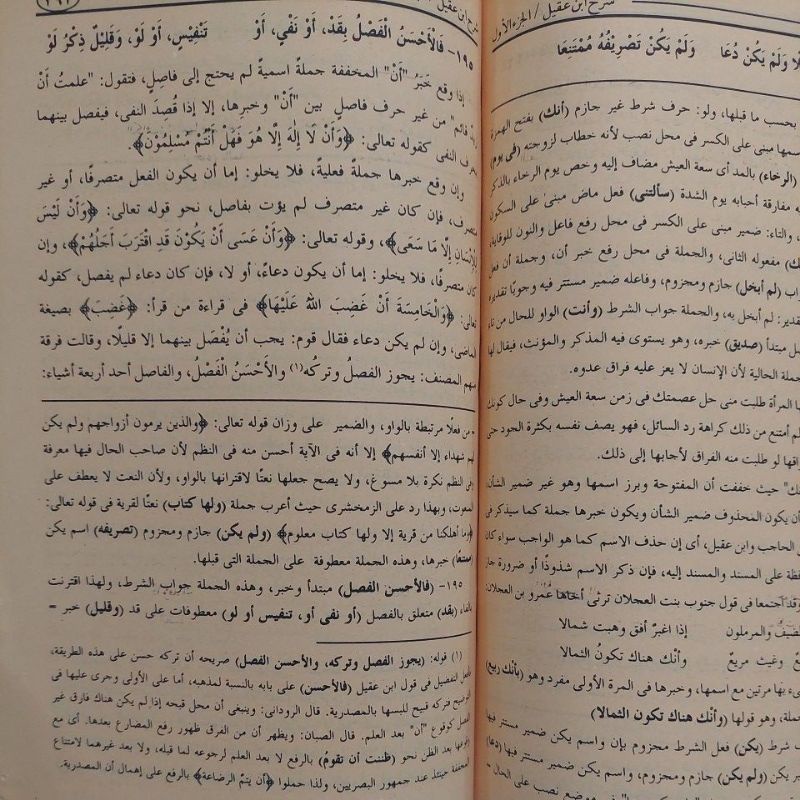 شرح ابن عقيل / الجزء الأول
وَلَمْ يَكُنْ دُعَا وَلَمْ يَكُنْ تَصْرِيفُهُ مُمْتَنِعَا
بحسب ما قبلها، ولو: حرف شرط غير جازم (أنك) بفتح الهمزة
اسمها مبنى على الكسر فى محل نصب لأنه خطاب لزوجته (فى يوم)
(الرخاء) بالمد أى سعة العيش مضاف إليه وخص يوم الرخاء بالذكر
مفارقة أحبابه يوم الشدة (سألتنى) فعل ماض مبنى على السكون
والتاء: ضمير مبنى على الكسر فى محل رفع فاعل والنون للوقاية
مفعوله الثانى، والجملة فى محل رفع خبر أن، وجملة أن فعل
(لم أبخل) جازم ومجزوم، وفاعله ضمير مستتر فيه وجوبًا تقديره
لم أبخل به، والجملة جواب الشرط (وأنت) الواو للحال من
مبتدأ (صديق) خبره، وهو يستوى فيه المذكر والمؤنث، فيقال لها
الجملة الحالية لأن الإنسان لا يعز عليه فراق عدوه.
المرأة طلبت منى حل عصمتك فى زمن سعة العيش وفى حال كونك
لم أمتنع من ذلك كراهة رد السائل، فهو يصف نفسه بكثرة الجود حتى
لو طلبت منه الفراق لأجابها إلى ذلك.
حيث خففت أن المفتوحة وبرز اسمها وهو غير ضمير الشأن
أن يكون المحذوف ضمير الشأن ويكون خبرها جملة كما سيذكر فى
الحاجب وابن عقيل، أى إن حذف الاسم كما هو الواجب سواء كان
على المسند والمسند إليه، فإن ذكر الاسم شذوذًا أو ضرورة جاز
وقد اجتمعا فى قول جنوب بنت العجلان ترثى أخاها عمرو بن العجلان
الضيف والمرملون إذا اغبرَّ أفق وهبت شمالا
وغيث مريعٌ وأنْك هناك تكونُ الثمالا
بها مرتين مع اسمها، وخبرها فى المرة الأولى مفرد وهو (بأنك ربيع)
جملة، وهو قولها (وأنْك هناك تكون الثمالا)
شرط (يكن) فعل الشرط مجزوم بإن واسم يكن ضمير مستتر فيها
يكن (ولم يكن) جازم ومجزوم، واسم يكن ضمير مستتر فيها (دعا)
فى موضع نصب على الحال
شرح ابن عقيل / الجزء
١٩٥- فَالأَحْسَنُ الْفَصْلُ بِقَدْ، أَوْ نَفْيٍ، أَوْ تَنْفِيسٍ، أَوْ لَوْ، وَقَلِيْلٌ ذِكْرُ لَوْ
إذا وقع خَبَرُ "أَنْ" المخففة جملةً اسمية لم يحتج إلى فاصلٍ، فتقول: "علمتُ أَنْ
قائم" من غير حرف فاصلٍ بين "أَنْ" وخبرها، إلا إذا قُصِدَ النفى، فيفصل بينهما
بحرف النفى كقوله تعالى: ﴿وَأَنْ لَا إِلَٰهَ إِلَّا هُوَ فَهَلْ أَنْتُمْ مُسْلِمُوْنَ﴾.
وإن وقع خبرها جملةً فعليةً، فلا يخلو: إما أن يكون الفعل متصرفًا، أو غير
متصرف، فإن كان غير متصرف لم يؤت بفاصل، نحو قوله تعالى: ﴿وَأَنْ لَيْسَ
لِلْإِنْسَانِ إِلَّا مَا سَعَى﴾، وقوله تعالى: ﴿وَأَنْ عَسَى أَنْ يَكُوْنَ قَدِ اقْتَرَبَ أَجَلُهُمْ﴾، وإن
كان متصرفًا، فلا يخلو: إما أن يكون دعاءً، أو لا، فإن كان دعاء لم يفصل، كقوله
تعالى: ﴿وَالْخَامِسَةَ أَنْ غَضِبَ اللهُ عَلَيْهَا﴾ فى قراءة من قرأ: ﴿غَضِبَ﴾ بصيغة
الماضى، وإن لم يكن دعاء فقال قوم: يجب أن يُفْصَل بينهما إلا قليلًا، وقالت فرقة
منهم المصنف: يجوز الفصلُ وتركُه(١) والأَحْسَنُ الْفَصْلُ، والفاصل أحد أربعة أشياء:
من فعلًا مرتبطة بالواو، والضمير على وزان قوله تعالى: ﴿والذين يرمون أزواجهم ولم يكن
لهم شهداء إلا أنفسهم﴾ إلا أنه فى الآية أحسن منه فى النظم لأن صاحب الحال فيها معرفة
وفى النظم نكرة بلا مسوغ، ولا يصح جعلها نعتًا لاقترانها بالواو، ولأن النعت لا يعطف على
المنعوت، وبهذا رد على الزمخشرى حيث أعرب جملة (ولها كتاب) نعتًا لقرية فى قوله تعالى:
﴿وما أهلكنا من قرية إلا ولها كتاب معلوم﴾ (ولم يكن) جازم ومجزوم (تصريفه) اسم يكن
(ممتنعا) خبرها، وهذه الجملة معطوفة على الجملة التى قبلها.
١٩٥- (فالأحسن الفصل) مبتدأ وخبر، وهذه الجملة جواب الشرط، ولهذا اقترنت
بالفاء (بقد) متعلق بالفصل (أو نفى أو، تنفيس أو لو) معطوفات على قد (وقليل) خبر =
(١) قوله: (يجوز الفصل وتركه، والأحسن الفصل) صريحه أن تركه حسن على هذه الطريقة،
وأفعل التفضيل فى قول ابن عقيل (فالأحسن) على بابه بالنسبة لمذهبه، أما على الأولى وجرى عليها فى
التوضيح فتركه قبيح للبسها بالمصدرية. قال الرودانى: وينبغى أن محل قبحه إذا لم يكن هناك فارق غير
الفصل كوقوع "أن" بعد العلم. قال الصبان: ويظهر أن من الفرق ظهور رفع المضارع بعدها. أى مع
وقوعها بعد الظن نحو (ظننت أن تقومُ) بالرفع لا بعد العلم لرجوعه لما قبله، ولا بعد غيرهما لامتناع
المخففة حينئذ عند جمهور البصريين، ولذا حملوا ﴿أن يتمُّ الرضاعة﴾ بالرفع على إهمال أن المصدرية.